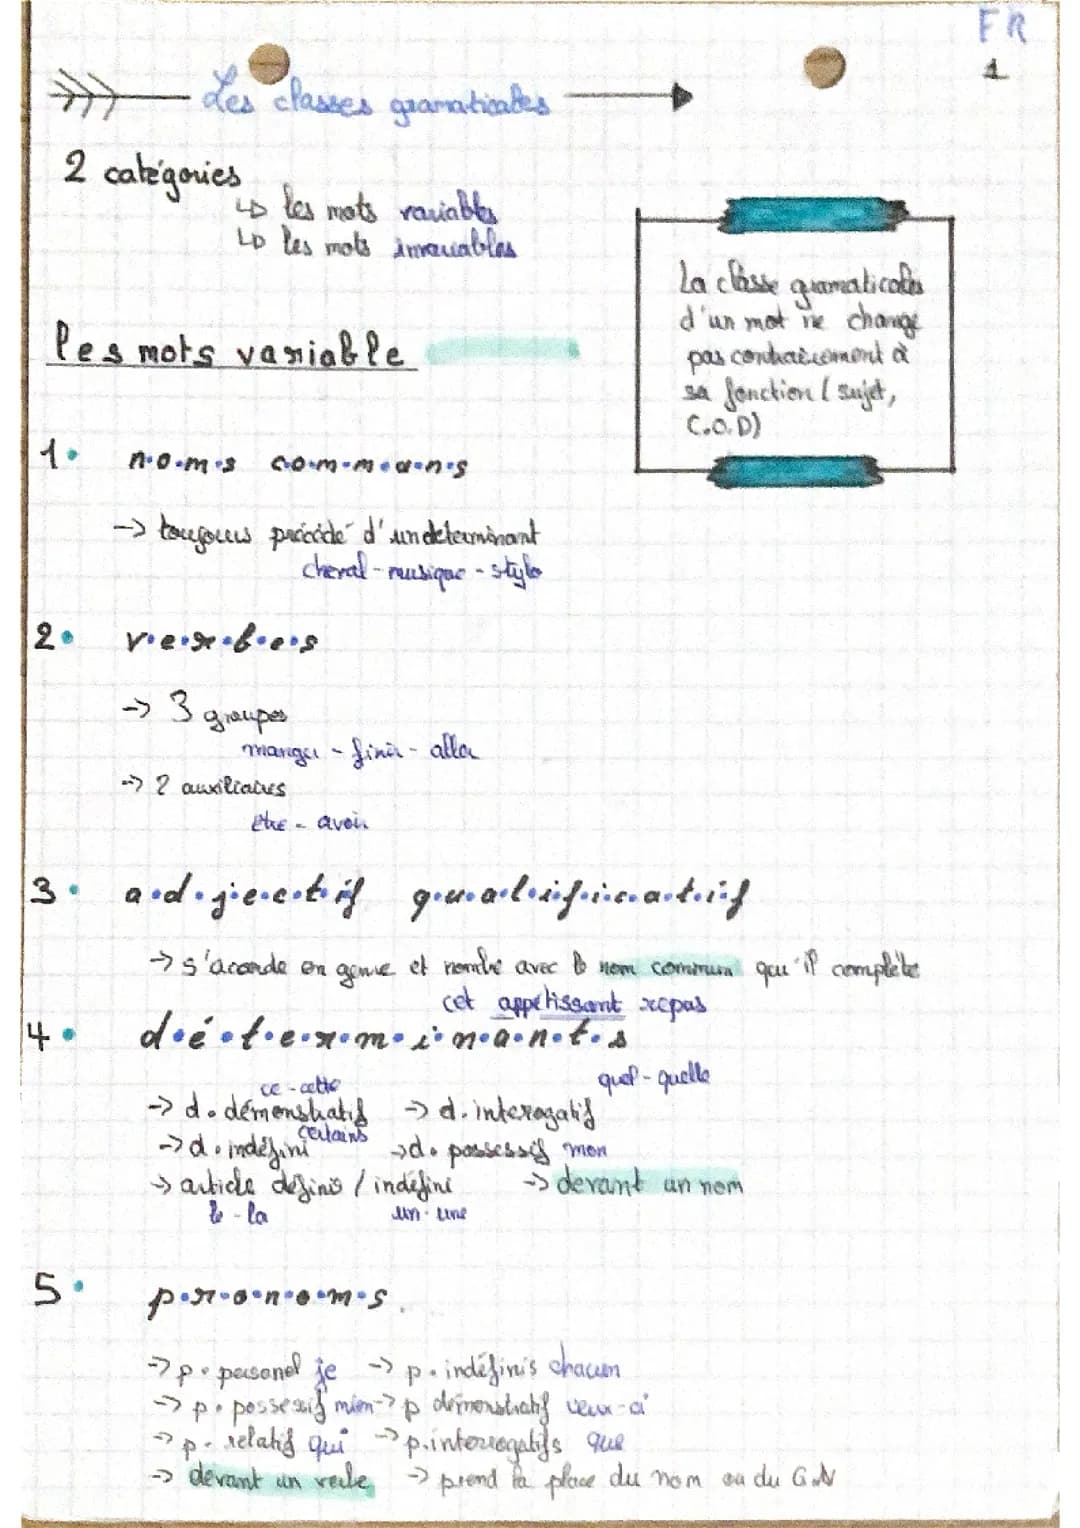 FR
1
Les classes gramaticales
2 catégories
↳ les mots variables
↳ les mots invariables
La classe gramaticales
d'un mot ne change
pas contrairement à
sa fonction (sujet,
C.O.D)
les mots variable
1. n.o.m.s c.o.m.m.u.n.s
-> toujours précédé d'un determinant
cheval - musique - stylo
2. v.e.r.b.e.s
-> 3 groupes
manger - finir - aller
-> 2 auxiliaires
être - avoir
3. a.d.j.e.c.t.if q.u.a.l.i.f.i.c.a.t.i.f
-> s'acorde en genre et nombre avec le nom commun qu'il complète
cet appétissant repas
4. d.é.t.e.r.m.i.n.a.n.t.s
ce - cette quel - quelle
-> d. démonstratif -> d. interogatif
certains
-> d. indéfini -> d. possessif mon
-> article définis / indéfini -> devant un nom
le - la un - une
5. p.r.o.n.o.m.s.
-> p. personel je -> p. indéfinis chacun
-> p. possessif mien -> p démonstratif ceux-ci
-> p. relatif qui -> p. interrogatifs que
-> devant un verbe -> prend la place du nom ou du G.N